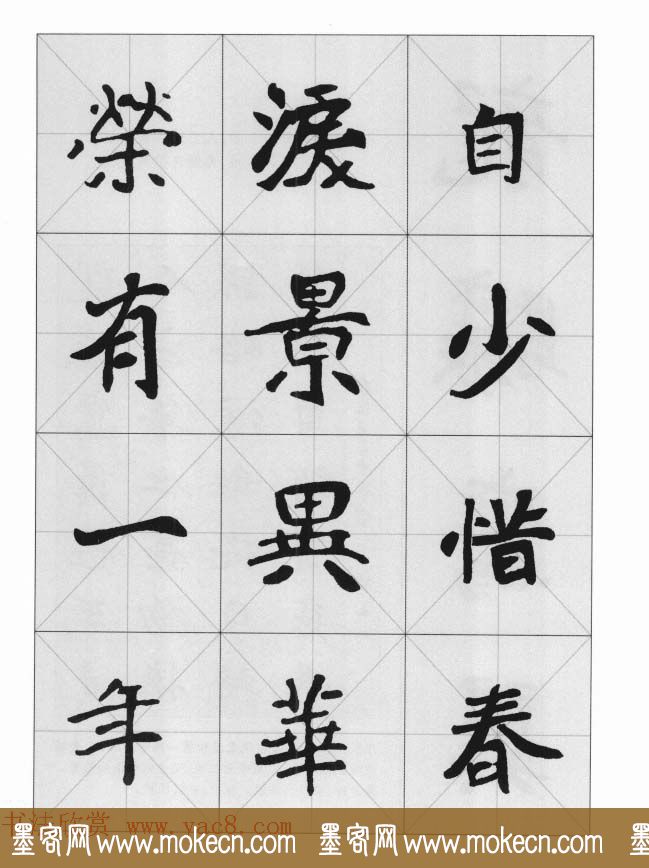 自少惜春
淚景異華
榮有一年
书法欣赏 www.yac8.com
墨客网 www.mokecn.com 墨客网 www.mokecn.com